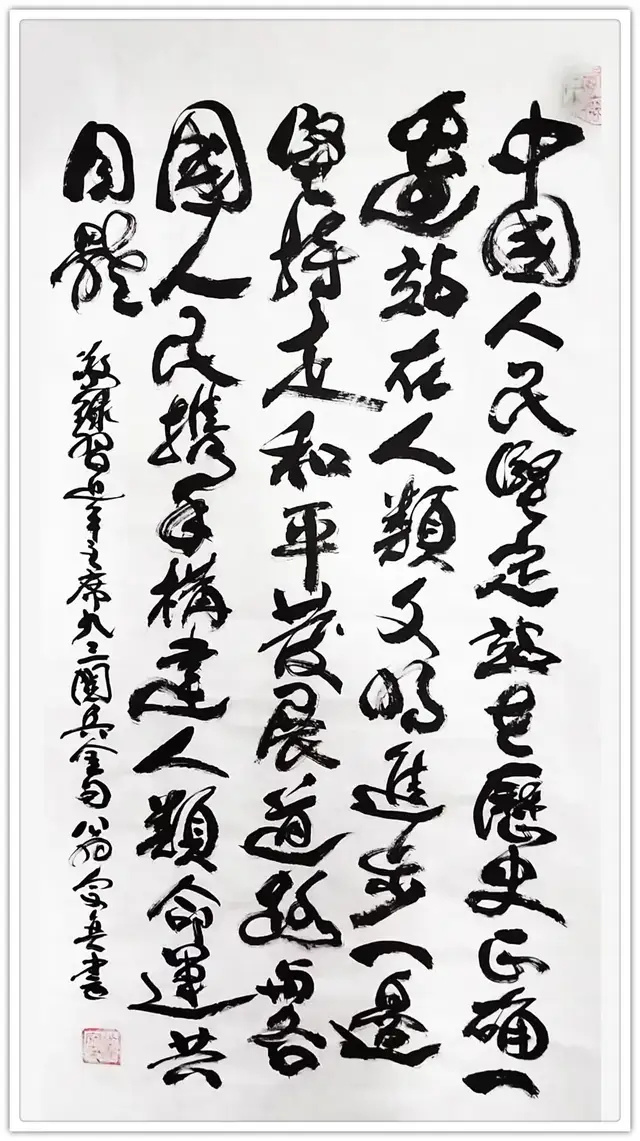 中國人民堅定站在歷史正確一
邊站在人類文明進步一邊
堅持走和平發展道路與各
國人民携手構建人類命運共
同體
敬錄習近平主席九三閱兵金句 書